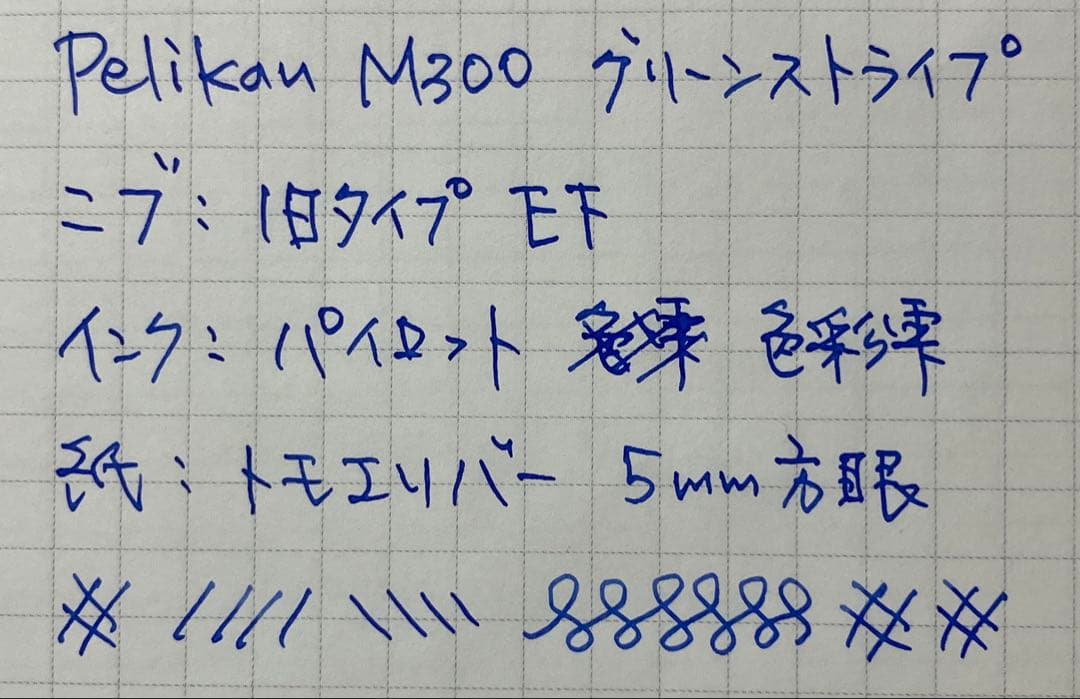 Pelikan M300 グリーンストライプ
ニブ：旧タイプ EF
インク：パイロット 色彩雫
紙：トモエリバー 5mm方眼